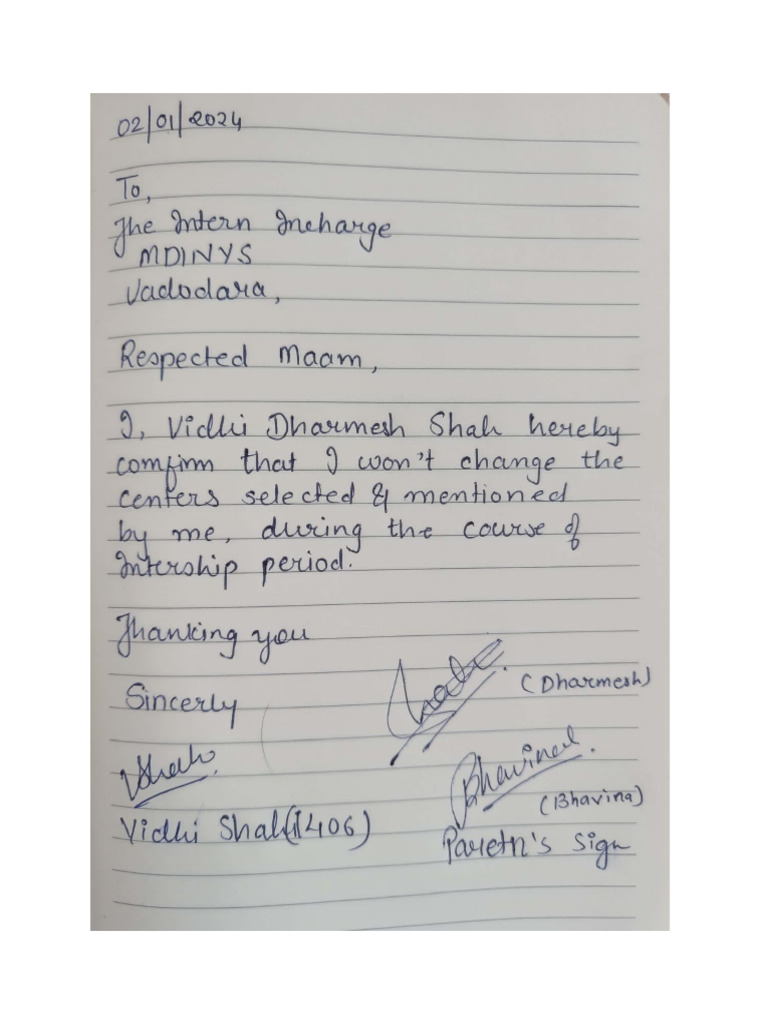 02/01/2024
To,
The Intern Incharge
MDINYS
Vadodara,
Respected Maam,
I, Vidhi Dharmesh Shah hereby
comfirm that I won't change the
centers selected & mentioned
by me, during the course of
Intership period.
Thanking you
Sincerly
(Dharmesh)
VShah
Bhavina
(Bhavina)
Vidhi Shah (1406)
Paretn's Sign